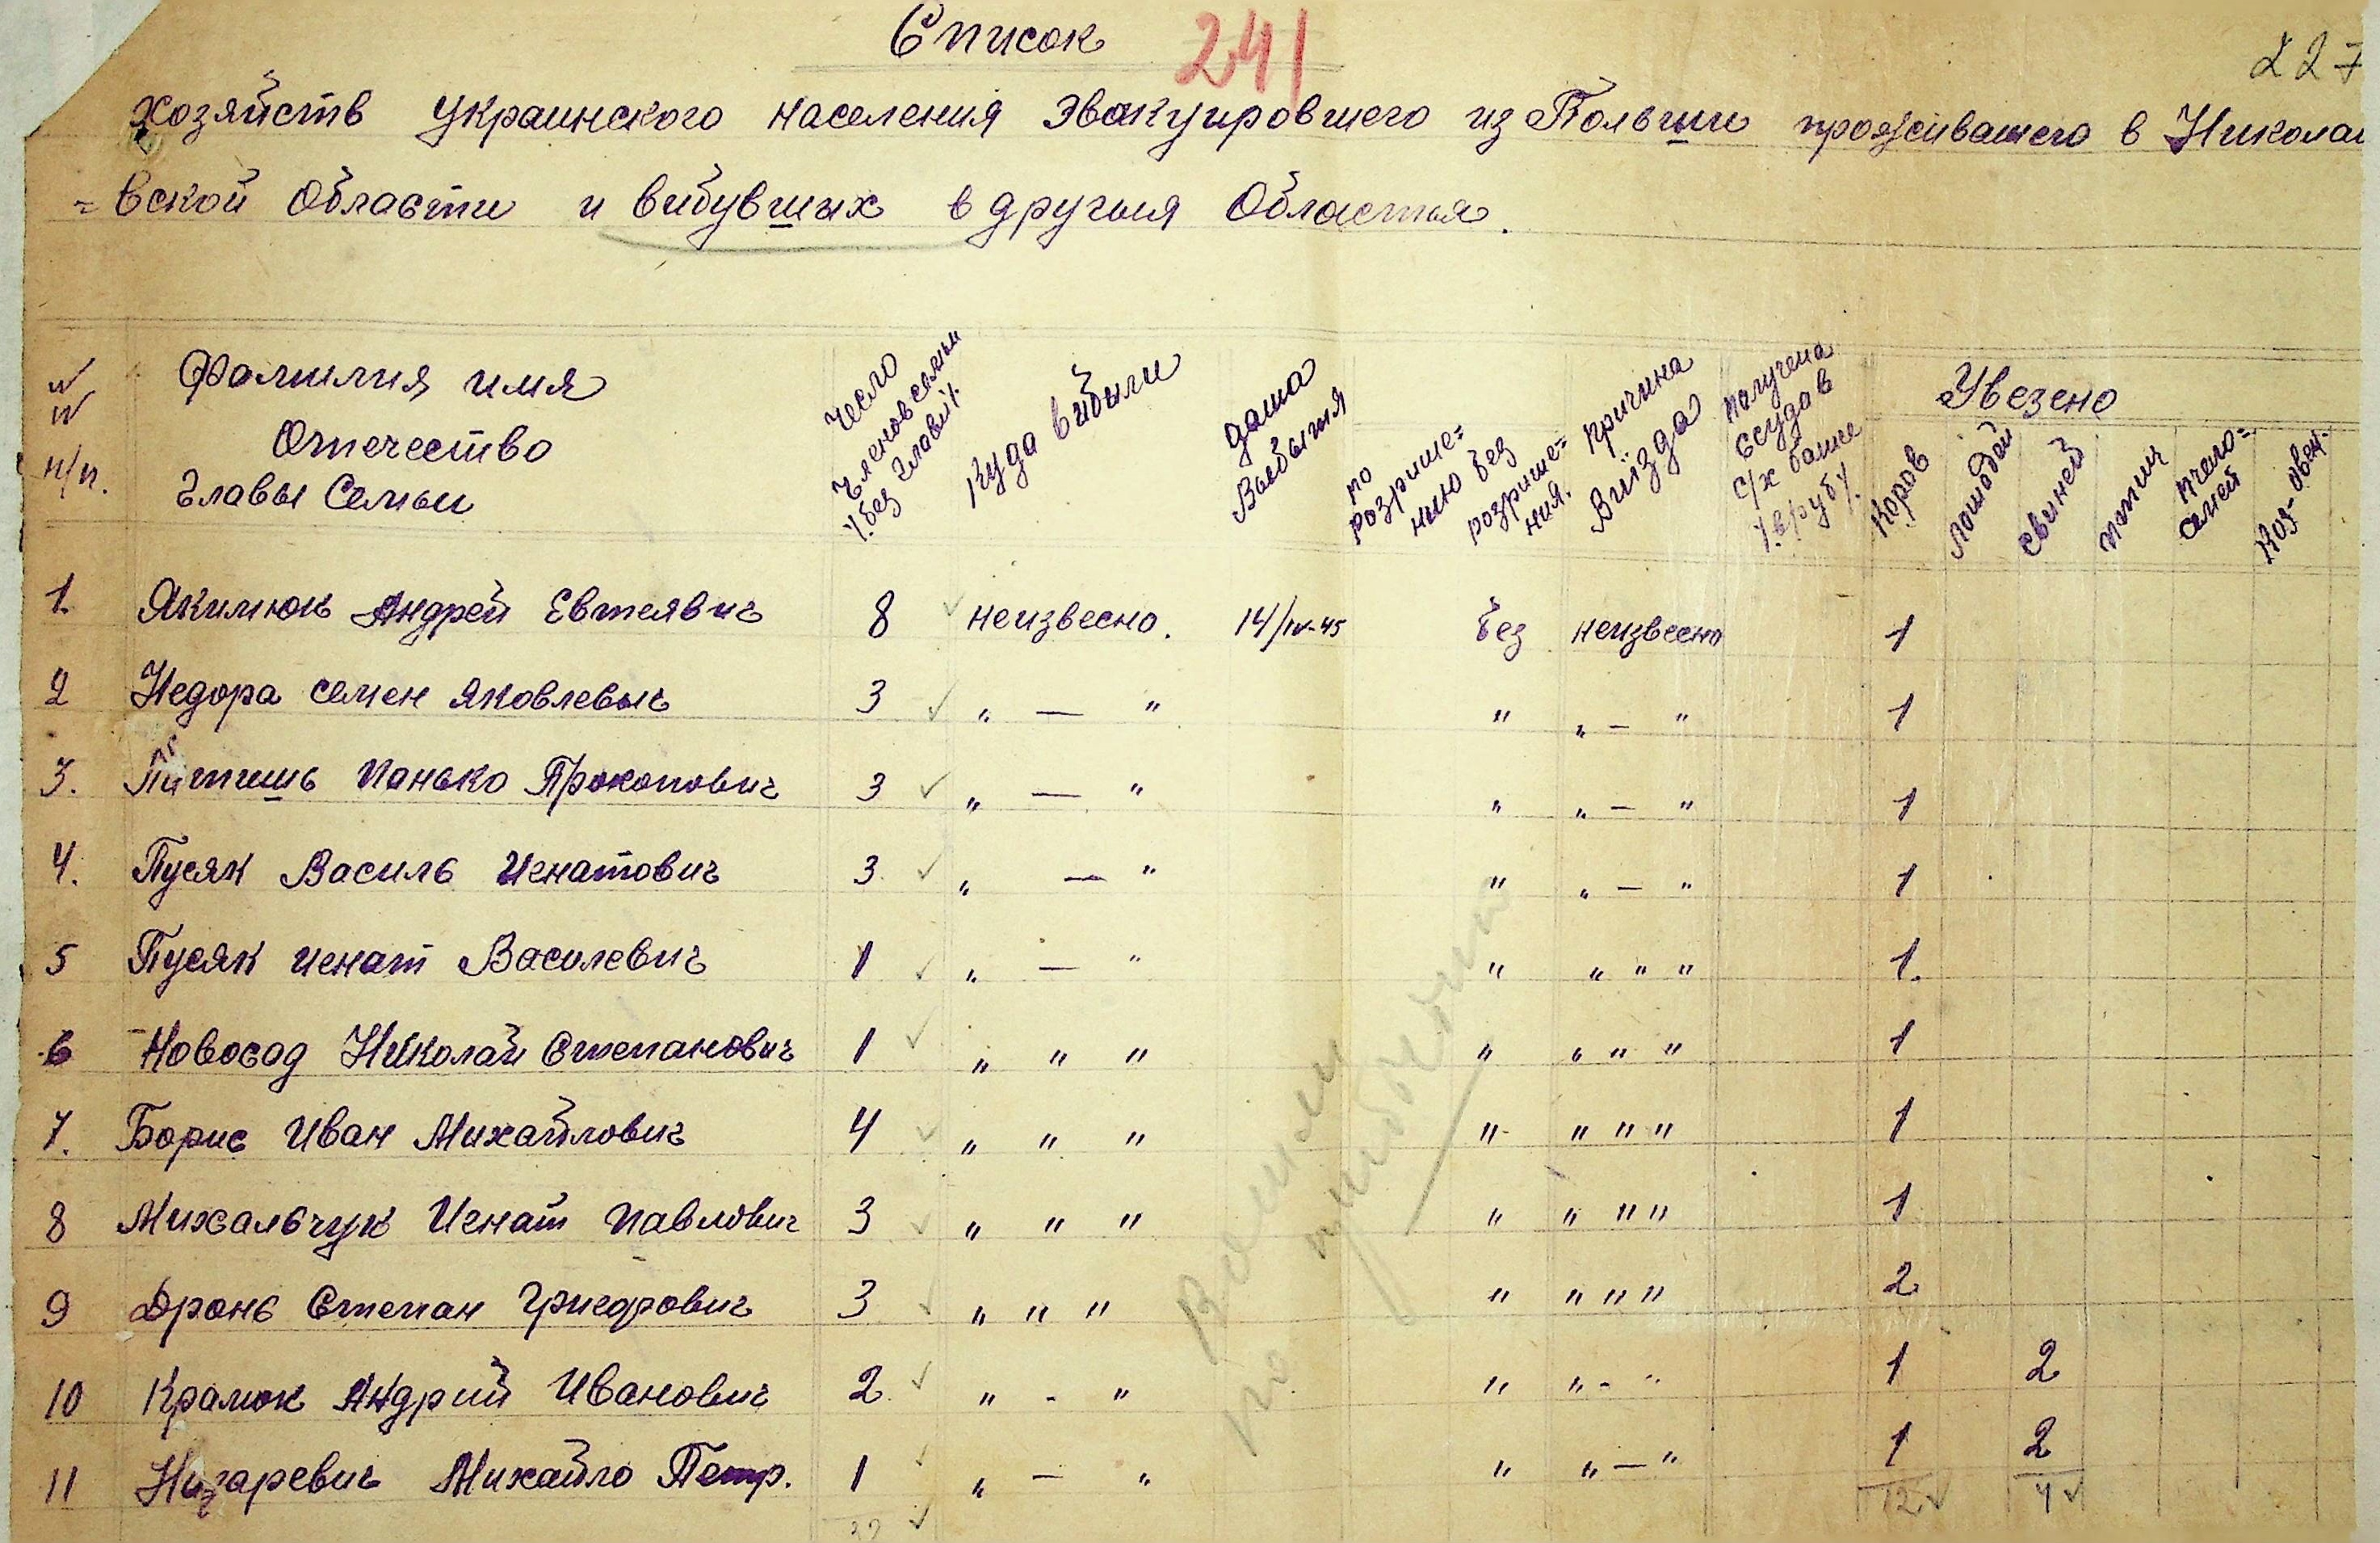 Список 241
227
хозяйств украинского населения эвакуировшего из Польши проживавшего в Николаи
= вской области и вибувших в другия Областья.
№ № н/п.
Фамилия имя Отечество Главы Семьи
Число членов семьи /без главы/
Куда вибыли
дата Выбытия
по розрише= нию
без розрише= ния.
причина виїзда
получена ссуда в с/х банке /в руб/.
Увезено
Коров
лошадей
свиней
птиц
пчело= семей
Коз - овец.
1. Якимюк Андрей Евтеявич 8 неизвесно. 14/IV-45 без неизвесно 1
2 Недора Семен Яковлевыч 3 „ — " " „ — " 1
3. Пи́тишь Панько Прокопович 3 „ — " " „ — " 1
4. Пусяк Василь Игнатович 3 „ — " " „ — " 1
5 Пусяк игнат Василевич 1 „ — " " " " " 1.
6 Новосад Николай Степанович 1 „ " " " " " " 1
7. Борис Иван Михайлович 4 „ " " " " " " 1
8 Михальчук Игнат Павлович 3 „ " " " " " " 1
9 Дронь Степан Григорович 3 „ " " " " " " 2
10 Крамок Андрий Иванович 2 „ - " " „ - " 1 2
11 Михайло Петр. 1 „ — " " „ — " 1 2
12 4